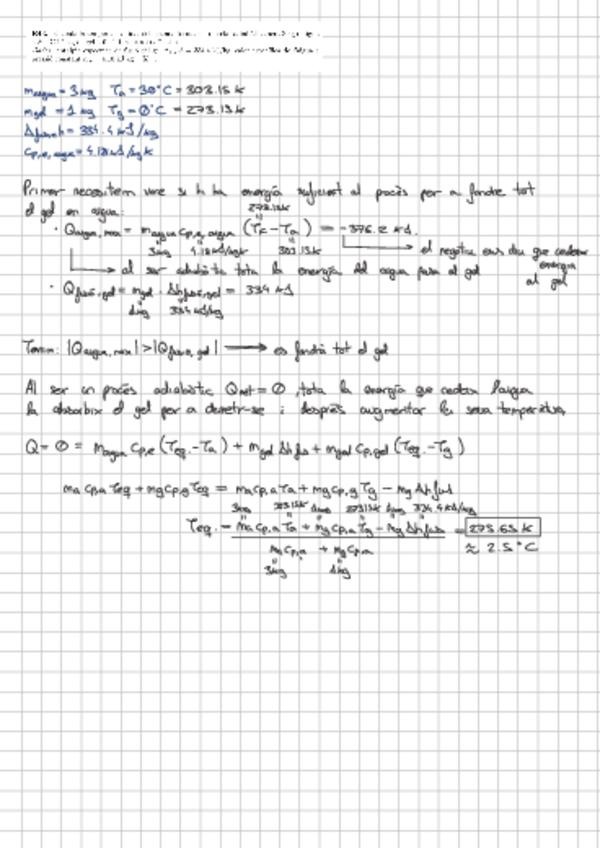 m_aigua = 3 kg   T_a = 30°C = 303.15 K
m_gel = 1 kg   T_g = 0°C = 273.15 K
Δ_fus h = 334.4 kJ/kg
c_p,e, aigua = 4.18 kJ/kg K
Primer necesitem vore si hi ha energía suficient al procés per a fondre tot
el gel en aigua:
273.15K
· Q_aigua, max = m_aigua c_p,e, aigua (T_F - T_a) = -376.2 kJ.
3kg   4.18 kJ/kgK   303.15K   el negatiu ens diu que cedeix
energía
al ser adiabàtic tota la energía del aigua passa al gel   al gel
· Q_fusió, gel = m_gel · Δh_fusió, gel = 334 kJ
1kg   334 kJ/kg
Tenim: |Q_aigua, max| > |Q_fusió, gel| → es fondrà tot el gel
Al ser un procés adiabàtic Q_net = 0, tota la energía que cedeix l'aigua
la absorbix el gel per a derretir-se i després augmentar la seua temperatura
Q = 0 = m_aigua c_p,e (T_eq. - T_a) + m_gel Δh_fus + m_gel c_p,gel (T_eq. - T_g)
m_a c_p,a T_eq + m_g c_p,g T_eq = m_a c_p,a T_a + m_g c_p,g T_g - m_g Δh_fus
3kg   1kg   273.15K   1kg   334.4 kJ/kg
T_eq. = m_a c_p,a T_a + m_g c_p,a T_g - m_g Δh_fus = 275.65 K
m_a c_p,a + m_g c_p,a   ≈ 2.5°C
3kg   1kg